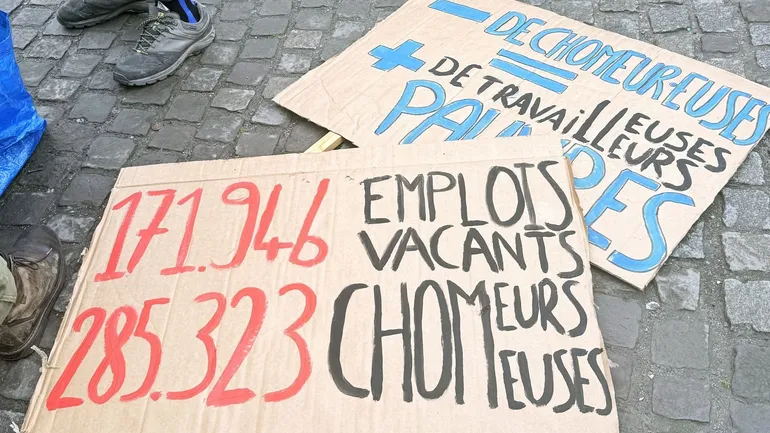 - DE CHOMEUREUSES
=
+ DE TRAVAILLEUSES
LEURS
PAUVRES
171.946 EMPLOIS
VACANTS
285.323 CHOMEURS
EUSES